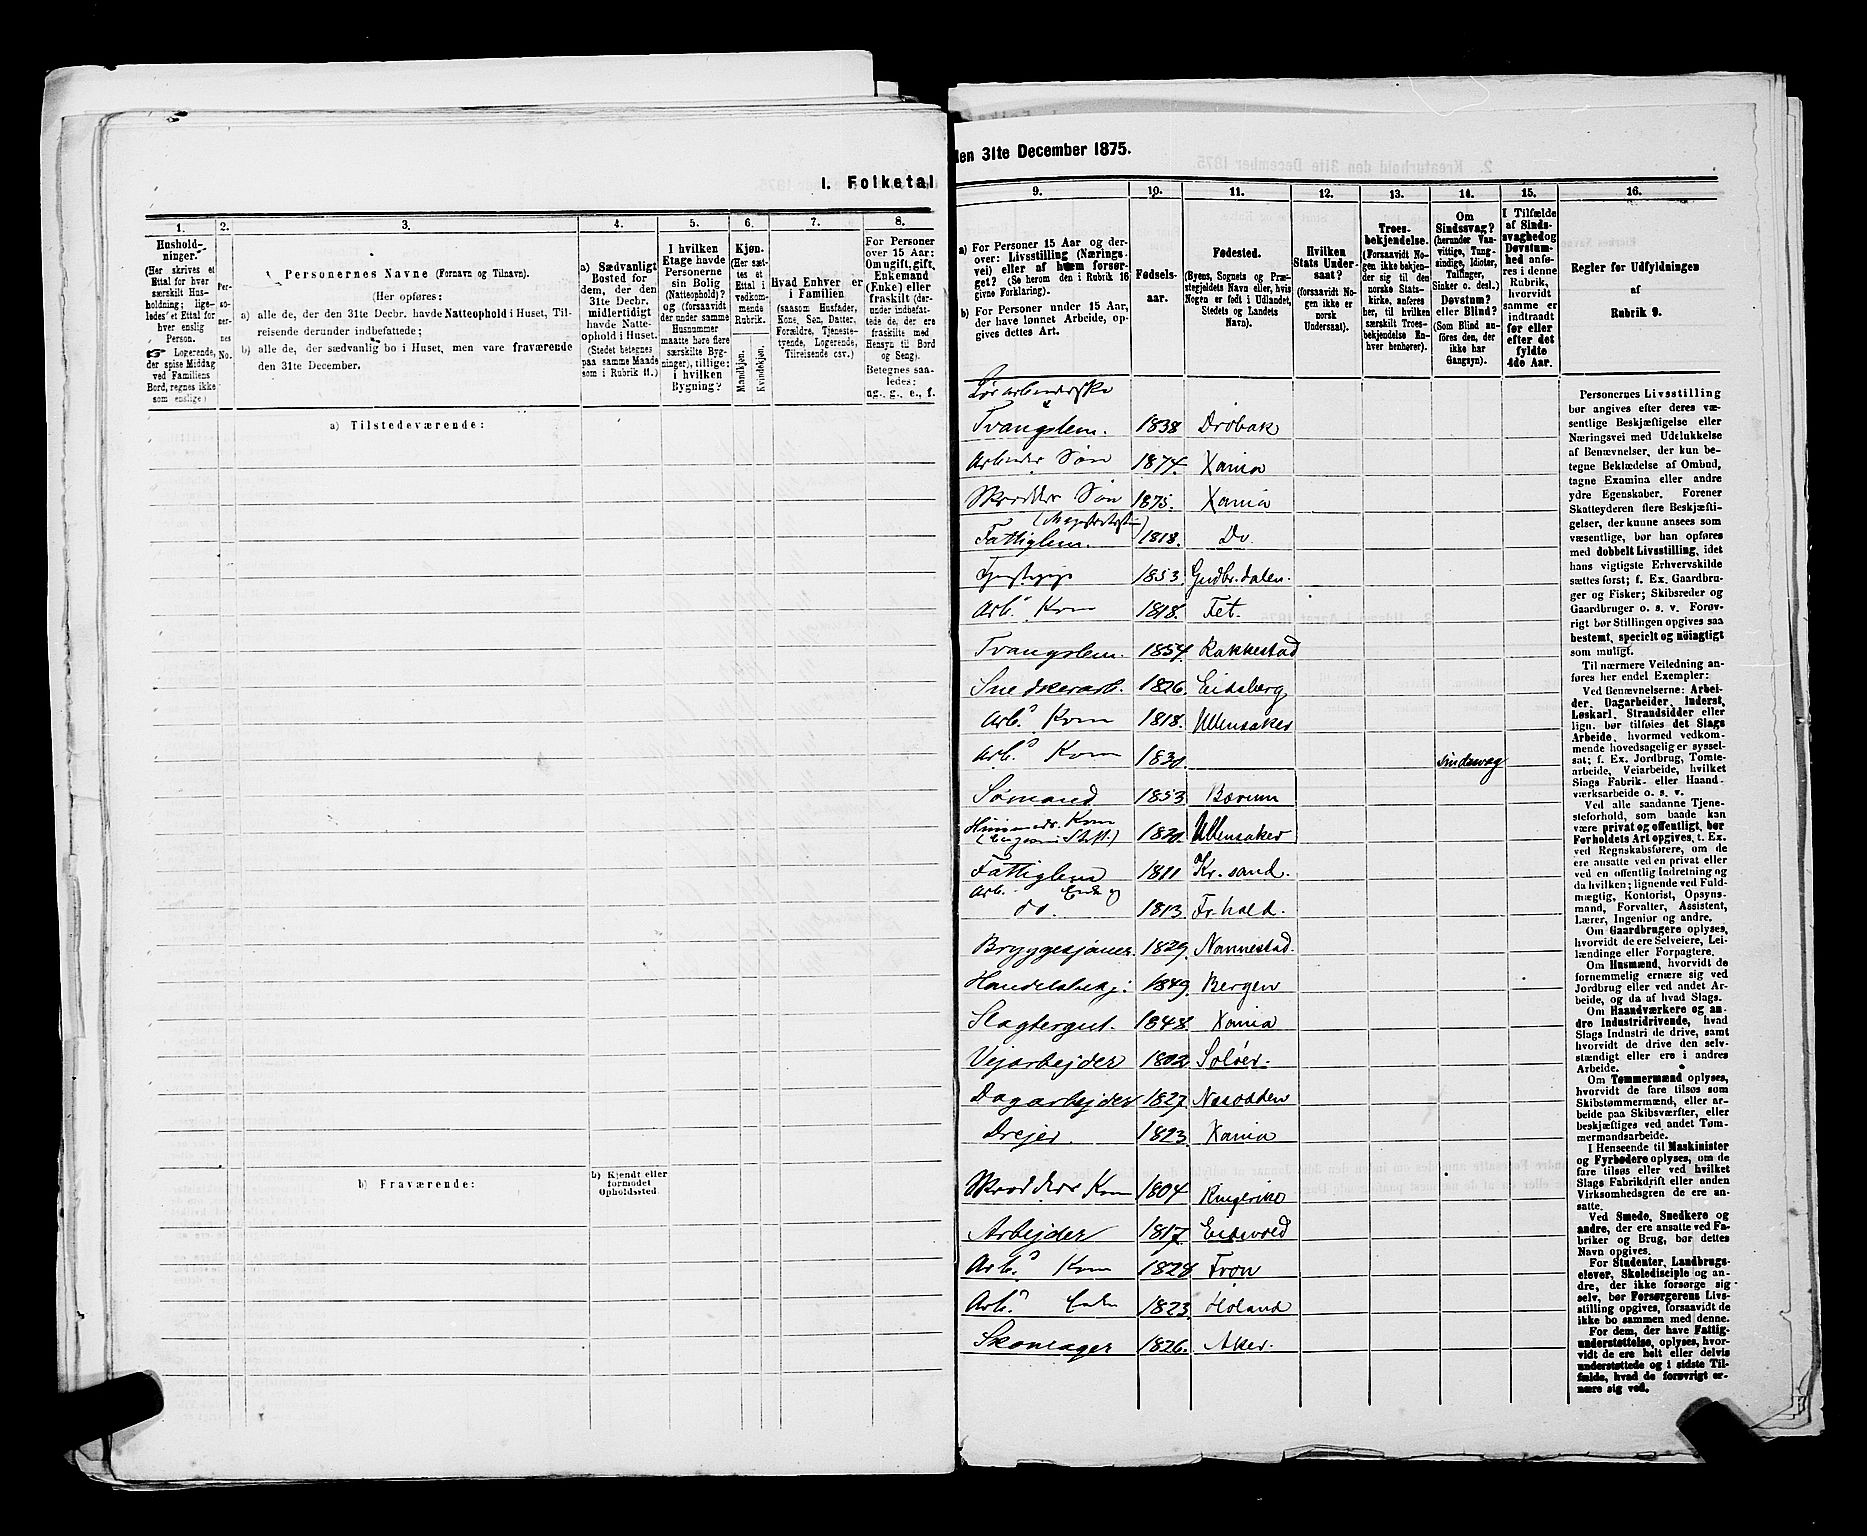 I. Folketal
1. 2. 3. 4. 5. 6. 7. 8.
Hushold-
ninger.
(Her skrives et
Ettal for hver
særskilt Hus-
holdning; lige-
ledes et Ettal for
hver enslig
Person.
Logerende,
der spise Middag
ved Familiens
Bord, regnes ikke
som enslige)
Per-
so-
ner-
nes
No.
Personernes Navne (Fornavn og Tilnavn).
(Her opføres:
a) alle de, der den 31te Decbr. havde Natteophold i Huset, Til-
reisende derunder indbefattede;
b) alle de, der sædvanlig bo i Huset, men vare fraværende
den 31te December.
a) Sædvanligt
Bosted for
dem, der den
31te Decbr.
midlertidigt
havde Natte-
ophold i Huset.
(Stedet betegnes
paa samme Maade
som i Rubrik 11.)
I hvilken
Etage havde
Personerne
sin Bolig
(Natteophold)?
og (forsaavidt
der under samme
Husnummer
maatte høre flere
særskilte Byg-
ninger), tillige:
i hvilken
Bygning?
Kjøn.
(Her sæt-
tes et
Ettal i
vedkom-
mende
Rubrik.
Mandkjøn.
Kvindekjøn.
Hvad Enhver er
i Familien
(saasom Husfader,
Kone, Søn, Datter,
Forældre, Tjeneste-
tyende, Logerende,
Tilreisende osv.)
For Personer
over 15 Aar:
Om ugift, gift,
Enkemand
(Enke) eller
fraskilt (der-
under indbefat-
tede de, der ere
fraskilte med
Hensyn til Bord
og Seng).
Betegnes saa-
ledes:
ug., g., e., f.
a) Tilstedeværende:
b) Fraværende:
b) Kjendt eller
formodet
Opholdssted.
den 31te December 1875.
9. 10. 11. 12. 13. 14. 15. 16.
a) For Personer 15 Aar og der-
over: Livsstilling (Nærings-
vei) eller af hvem forsør-
get? (Se herom den i Rubrik 16
givne Forklaring).
b) For Personer under 15 Aar,
der have lønnet Arbeide, op-
gives dettes Art.
Fødsels-
aar.
Fødested.
(Byens, Sognets og Præ-
stegjeldets Navn eller, hvis
Nogen er født i Udlandet,
Stedets og Landets
Navn).
Hvilken
Stats Under-
saat?
(forsaavidt No-
gen ikke er
norsk
Undersaat).
Troes-
bekjendelse.
(Forsaavidt No-
gen ikke bekjen-
der sig til den
norske Stats-
kirke, anføres
her, til hvilken
særskilt Troes-
bekjendelse En-
hver henhører).
Om
Sindssvag?
(herunder Van-
vittige, Tung-
sindige, Idioter,
Tullinger,
Sinker o. desl.)
Døvstum?
eller Blind?
(Som Blind an-
føres den, der
ikke har
Gangsyn).
I Tilfælde
af Sinds-
svaghed og
Døvstum-
hed anfø-
res i denne
Rubrik,
hvorvidt
samme er
indtraadt
før eller
efter det
fyldte
4de Aar.
Regler for Udfyldningen
af
Rubrik 9.
Tvangslem. 1838 Drøbak
Arbeider Søn 1874. Xania
Skrædder Søn 1875. Xania
Fattiglem. 1818. Do
1853 Gudbr.dalen.
Arb. Kone 1818. Fet.
Tvangslem. 1854. Rakkestad
Snedkerarb. 1826. Eidsberg
Arb. Kone 1818. Ullensaker
Arb. Kone 1830. sindsvag
Sømand 1853 Bærum
Husmands Kone 1830. Ullensaker
Fattiglem 1811 Kr.sand.
Arb. Enke
do. 1813. Fr.hald.
Bryggesjouer. 1829. Nannestad.
Handelsbetj. 1849. Bergen
Slagtergut. 1848. Xania
Vejarbejder 1802 Soløer.
Dagarbejder 1827. Nesodden
Drejer. 1823. Xania
Skrædders Kone 1804 Ringerike
Arbejder 1817. Eidsvold
Arb. Kone 1828 Fron
Arb. Enke 1823. Høland
Skomager 1826. Aker.
Personernes Livsstilling
bør angives efter deres væ-
sentlige Beskjæftigelse eller
Næringsvei med Udelukkelse
af Benævnelser, der kun be-
tegne Beklædelse af Ombud,
tagne Examina eller andre
ydre Egenskaber. Forener
Skatteyderen flere Beskjæfti-
gelser, der kunne ansees som
væsentlige, bør han opføres
med dobbelt Livsstilling, idet
hans vigtigste Erhvervskilde
sættes først; f. Ex. Gaardbru-
ger og Fisker; Skibsreder og
Gaardbruger o. s. v. Forøv-
rigt bør Stillingen opgives saa
bestemt, specielt og nöiagtigt
som muligt.
Til nærmere Veiledning an-
føres her endel Exempler:
Ved Benævnelserne: Arbei-
der, Dagarbeider, Inderst,
Løskarl, Strandsidder eller
lign. bør tilføies det Slags
Arbeide, hvormed vedkom-
mende hovedsagelig er syssel-
sat; f. Ex. Jordbrug, Tomte-
arbeide, Veiarbeide, hvilket
Slags Fabrik- eller Haand-
værksarbeide o. s. v.
Ved alle saadanne Tjene-
steforhold, som baade kan
være privat og offentligt, bør
Forholdets Art opgives, f. Ex.
ved Regnskabsførere, om de
ere ansatte ved en privat eller
ved en offentlig Indretning og
da hvilken; lignende ved Fuld-
mægtig, Kontorist, Opsyns-
mand, Forvalter, Assistent,
Lærer, Ingeniør og andre.
Om Gaardbrugere oplyses,
hvorvidt de ere Selveiere, Lei-
lændinge eller Forpagtere.
Om Husmænd, hvorvidt de
fornemmelig ernære sig ved
Jordbrug eller ved andet Ar-
beide, og da af hvad Slags.
Om Haandværkere og an-
dre Industridrivende, hvad
Slags Industri de drive, samt
hvorvidt de drive den selv-
stændigt eller ere i andres
Arbeide.
Om Tømmermænd oplyses,
hvorvidt de fare tilsøs som
Skibstømmermænd, eller ar-
beide paa Skibsværfter, eller
beskjæftiges ved andet Tøm-
mermandsarbeide.
I Henseende til Maskinister
og Fyrbødere oplyses, om de
fare tilsøs eller ved hvilket
Slags Fabrikdrift eller anden
Virksomhedsgren de ere an-
satte.
Ved Smede, Snedkere og
andre, der ere ansatte ved Fa-
briker og Brug, bør dettes
Navn opgives.
For Studenter, Landbrugs-
elever, Skoledisciple og an-
dre, der ikke forsørge sig
selv, bør Forsørgerens Livs-
stilling opgives, forsaavidt de
ikke bo sammen med denne.
For dem, der have Fattig-
understøttelse, oplyses, hvor-
vidt de ere helt eller delvis
understøttede og i sidste Til-
fælde, hvad de forøvrigt er-
nære sig ved.